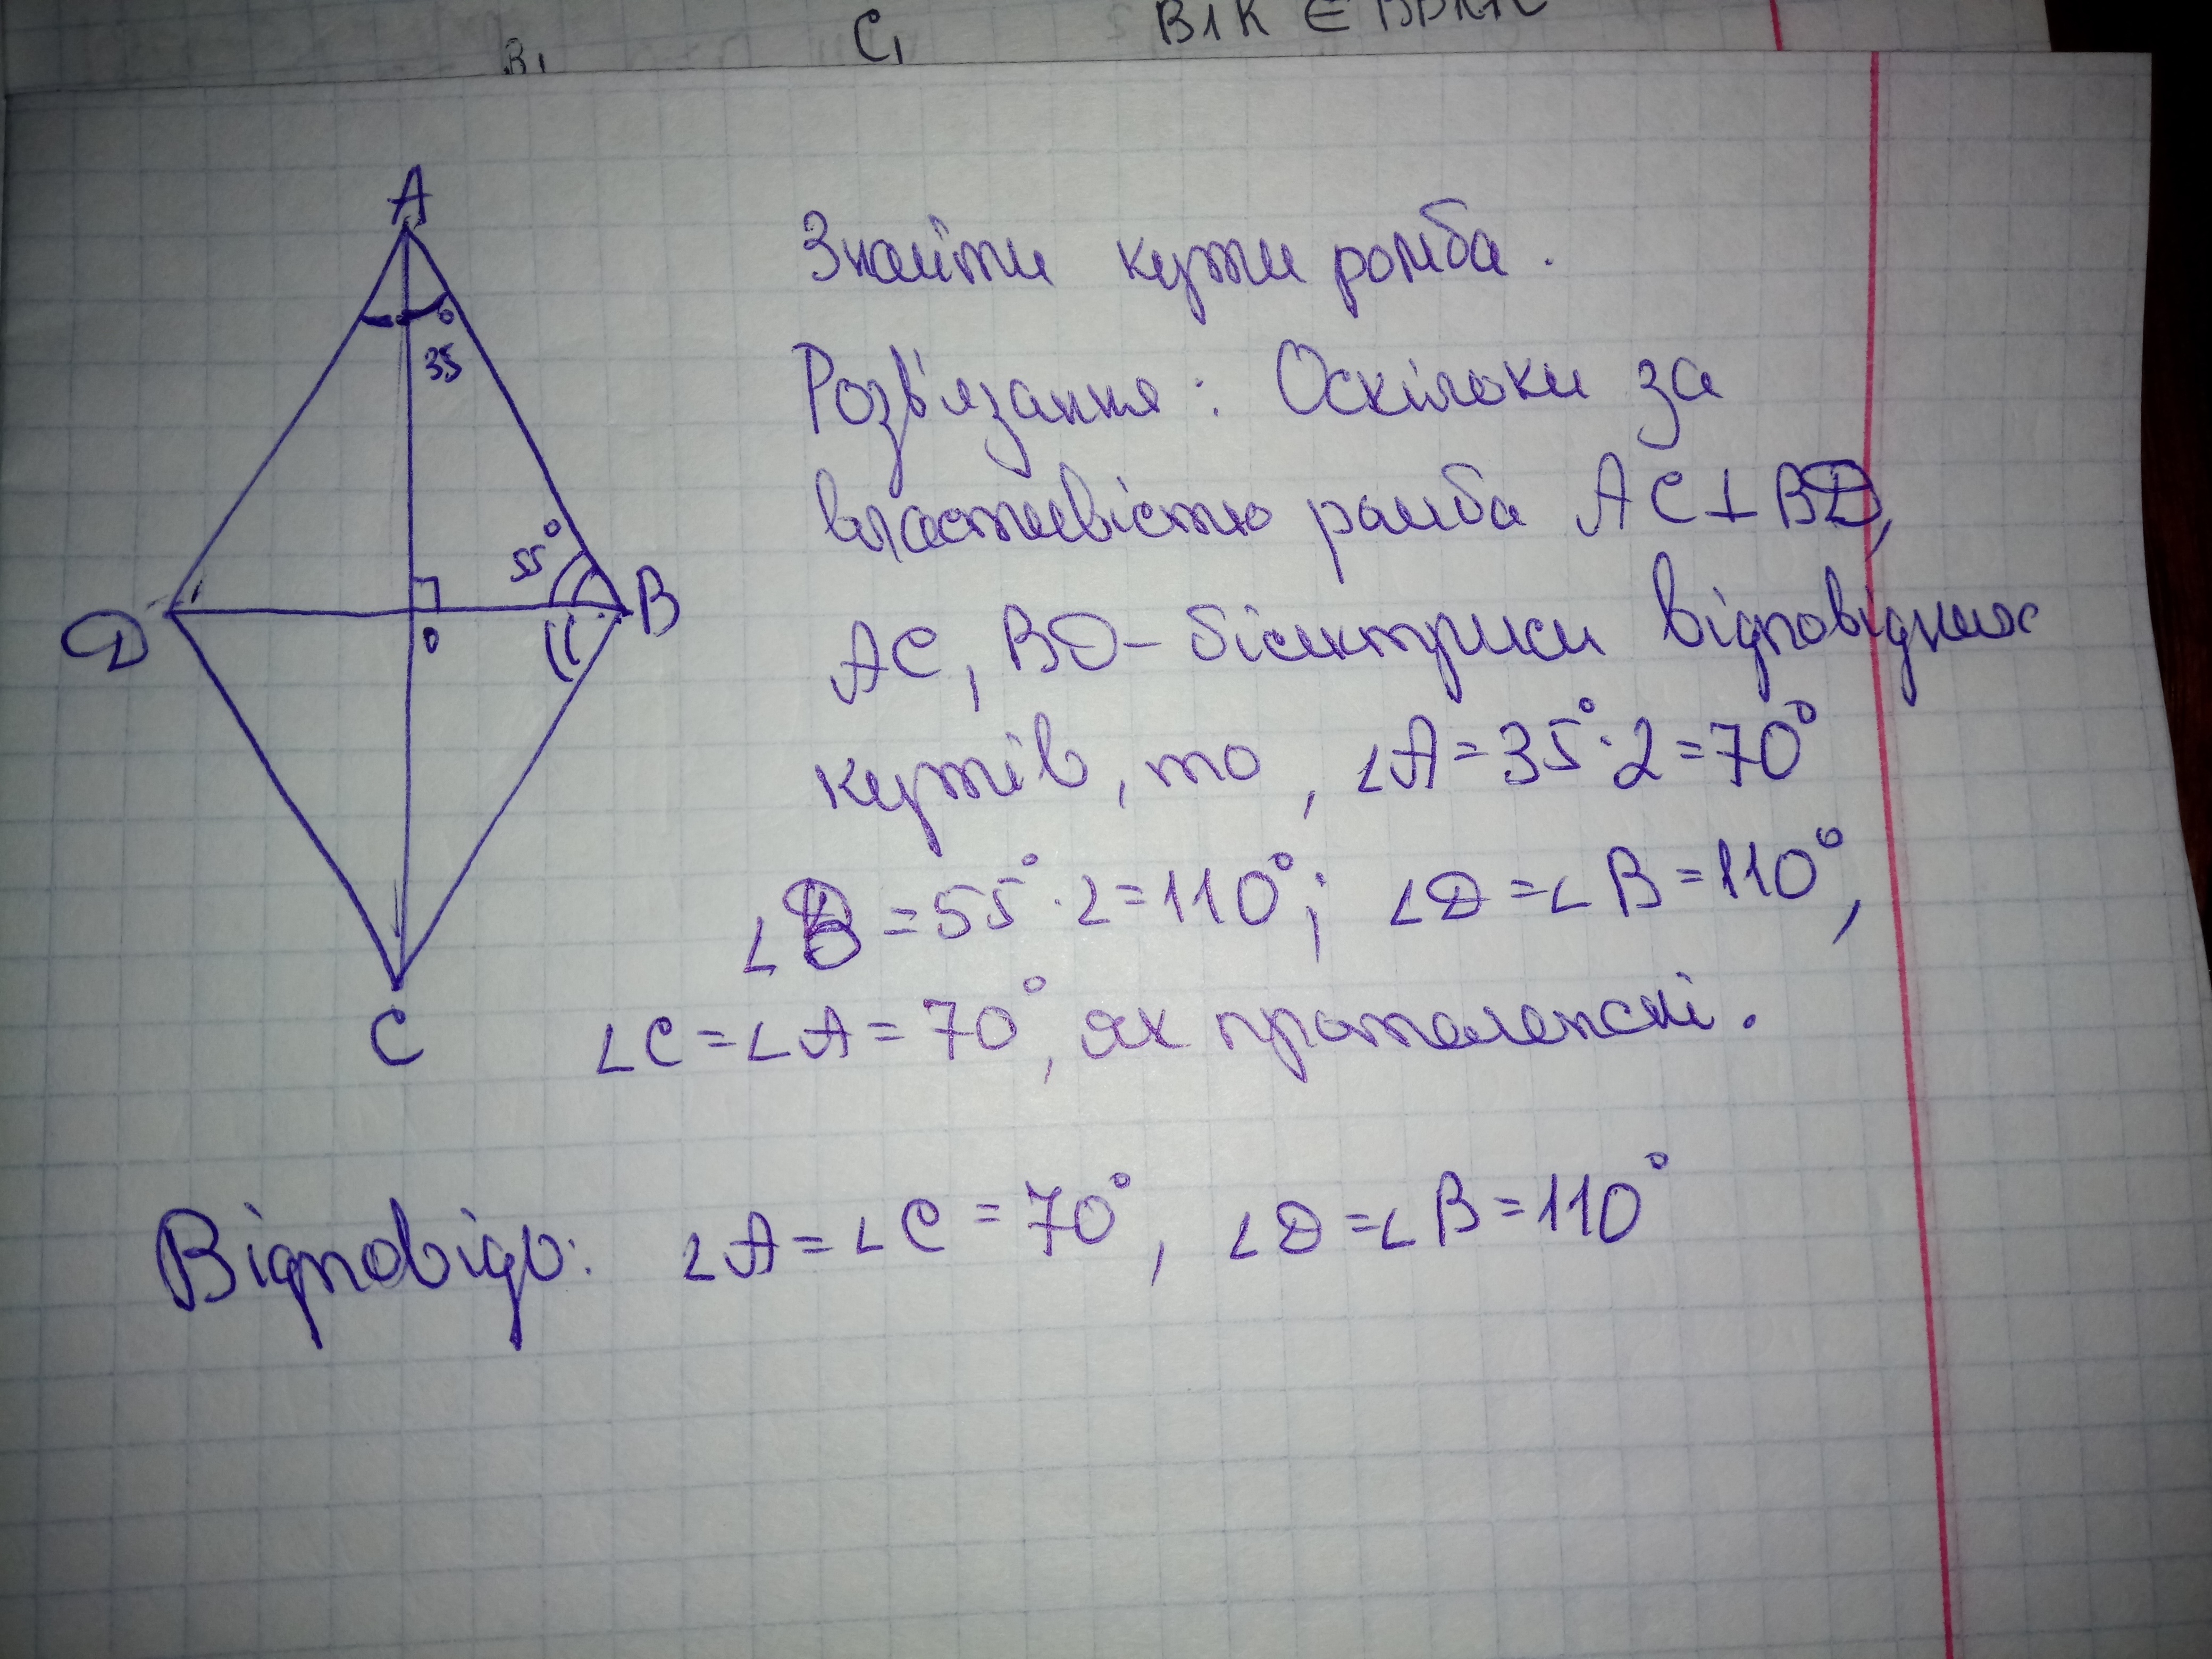 B₁
C₁
B1K ∈
A
35°
55°
D
O
B
C
Знайти кути ромба.
Розв'язання: Оскільки за
властивістю ромба AC⊥BD,
AC, BD - бісектриси відповідних
кутів, то, ∠A=35°·2=70°
∠B=55°·2=110°; ∠D=∠B=110°,
∠C=∠A=70°, як протилежні.
Відповідь: ∠A=∠C=70°, ∠D=∠B=110°